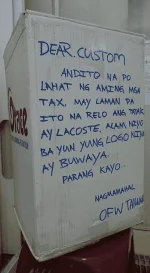 DEAR. CUSTOM
ANDITO NA PO
LAHAT NG AMING MGA
TAX, MAY LAMAN PA
ITO NA RELO ANG TATAK
AY LACOSTE, ALAM NIYO
BA YUN YUNG LOGO NIYA
AY BUWAYA
PARANG KAYO-
NAGMAMAHAL
OFW